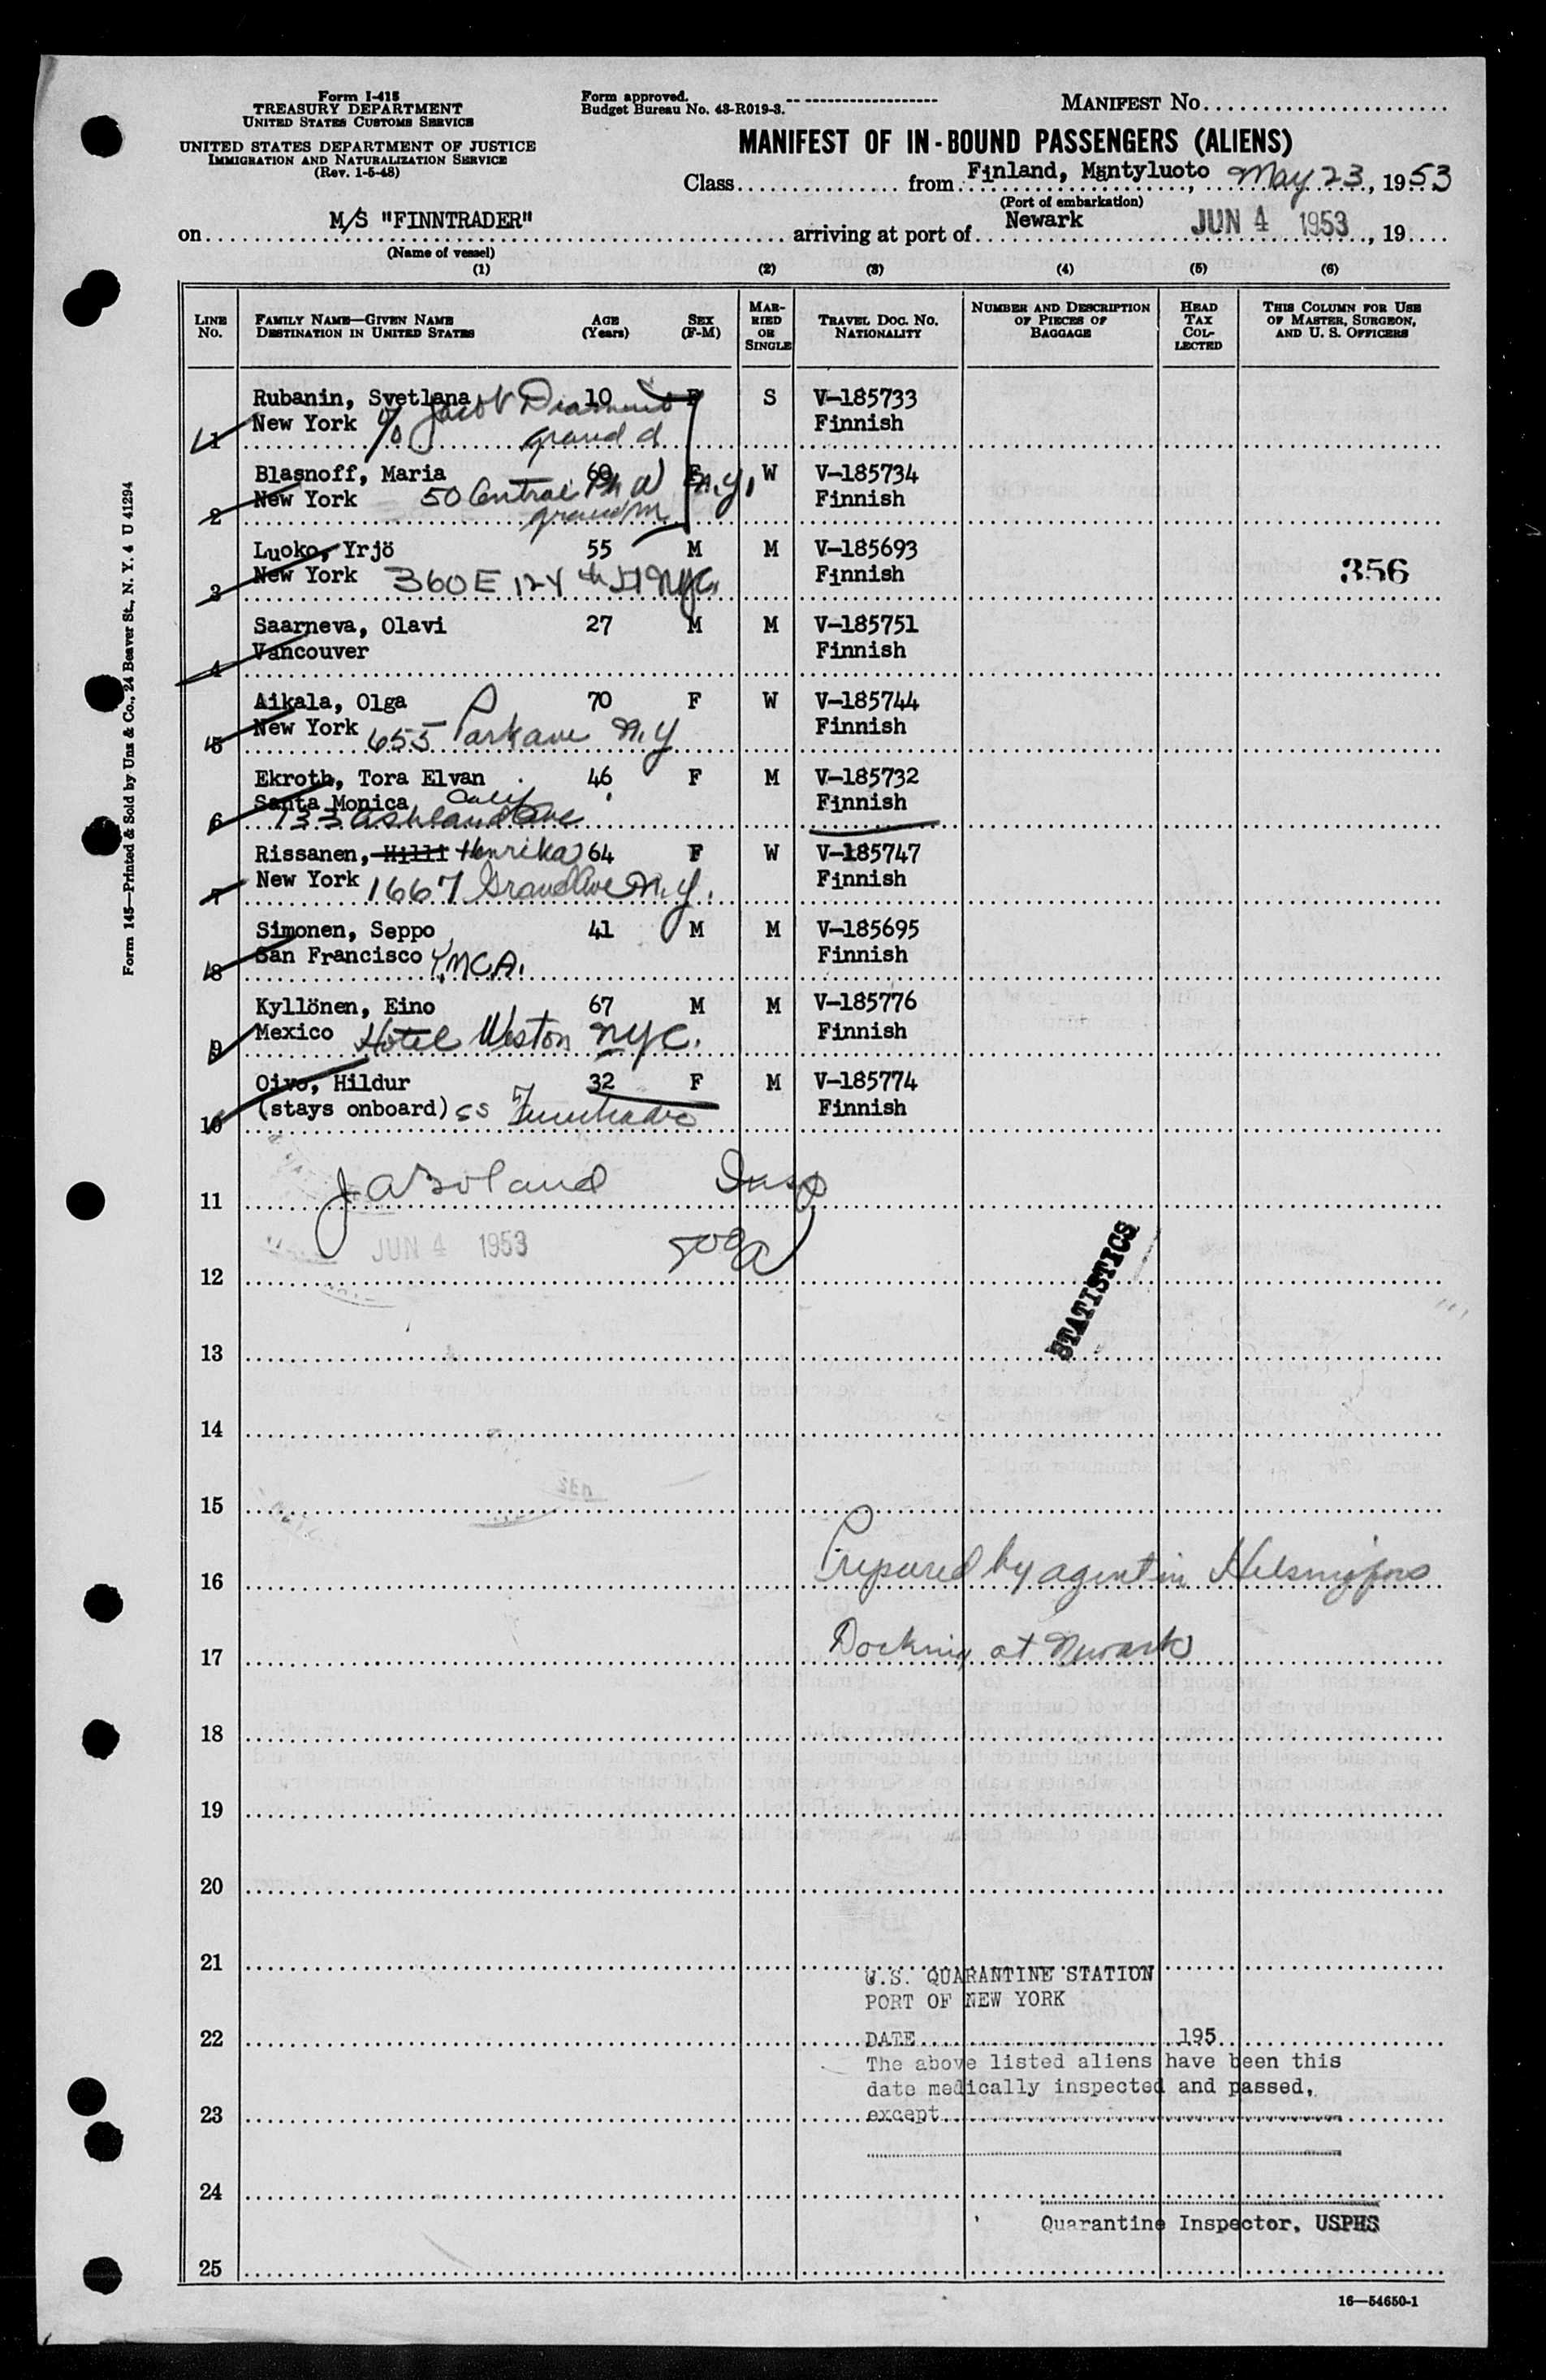 Form I-415
TREASURY DEPARTMENT
UNITED STATES CUSTOMS SERVICE
UNITED STATES DEPARTMENT OF JUSTICE
IMMIGRATION AND NATURALIZATION SERVICE
(Rev. 1-5-48)
Form approved.
Budget Bureau No. 43-R019-3.
MANIFEST No.
MANIFEST OF IN-BOUND PASSENGERS (ALIENS)
Class from Finland, Mäntyluoto, May 23, 1953
(Port of embarkation)
on M/S "FINNTRADER" arriving at port of Newark JUN 4 1953, 19
(Name of vessel)
(1) (2) (3) (4) (5) (6)
LINE No. FAMILY NAME—GIVEN NAME DESTINATION IN UNITED STATES AGE (Years) SEX (F-M) MARRIED OR SINGLE TRAVEL DOC. NO. NATIONALITY NUMBER AND DESCRIPTION OF PIECES OF BAGGAGE HEAD TAX COLLECTED THIS COLUMN FOR USE OF MASTER, SURGEON, AND U. S. OFFICERS
Rubanin, Svetlana 10 F S V-185733
1 New York c/o Jacob Diamond Finnish
grand d
Blasnoff, Maria 60 F W V-185734
2 New York 50 Central Pk W N.Y. Finnish
grandm
Luoko, Yrjö 55 M M V-185693
3 New York 360 E 124th St NYC Finnish
356
Saarneva, Olavi 27 M M V-185751
4 Vancouver Finnish
Aikala, Olga 70 F W V-185744
5 New York 655 Park ave N.Y Finnish
Ekroth, Tora Elvan 46 F M V-185732
6 Santa Monica Calif Finnish
733 Ashland Ave
Rissanen, Hilli Henrika 64 F W V-185747
7 New York 1667 Grand Ave N.Y. Finnish
Simonen, Seppo 41 M M V-185695
8 San Francisco Y.M.C.A. Finnish
Kyllönen, Eino 67 M M V-185776
9 Mexico Hotel Weston NYC. Finnish
Oivo, Hildur 32 F M V-185774
10 (stays onboard) SS Finntrader Finnish
J A Boland Insp
11
JUN 4 1953
12
STATISTICS
13
14
15
16 Prepared by agent in Helsingfors
17 Docking at Newark
18
19
20
21
U.S. QUARANTINE STATION
PORT OF NEW YORK
22 DATE 195
The above listed aliens have been this
date medically inspected and passed,
23 except
24
Quarantine Inspector, USPHS
25
16—54650-1
Form 145—Printed & Sold by Unz & Co., 24 Beaver St., N. Y. 4 U 41294